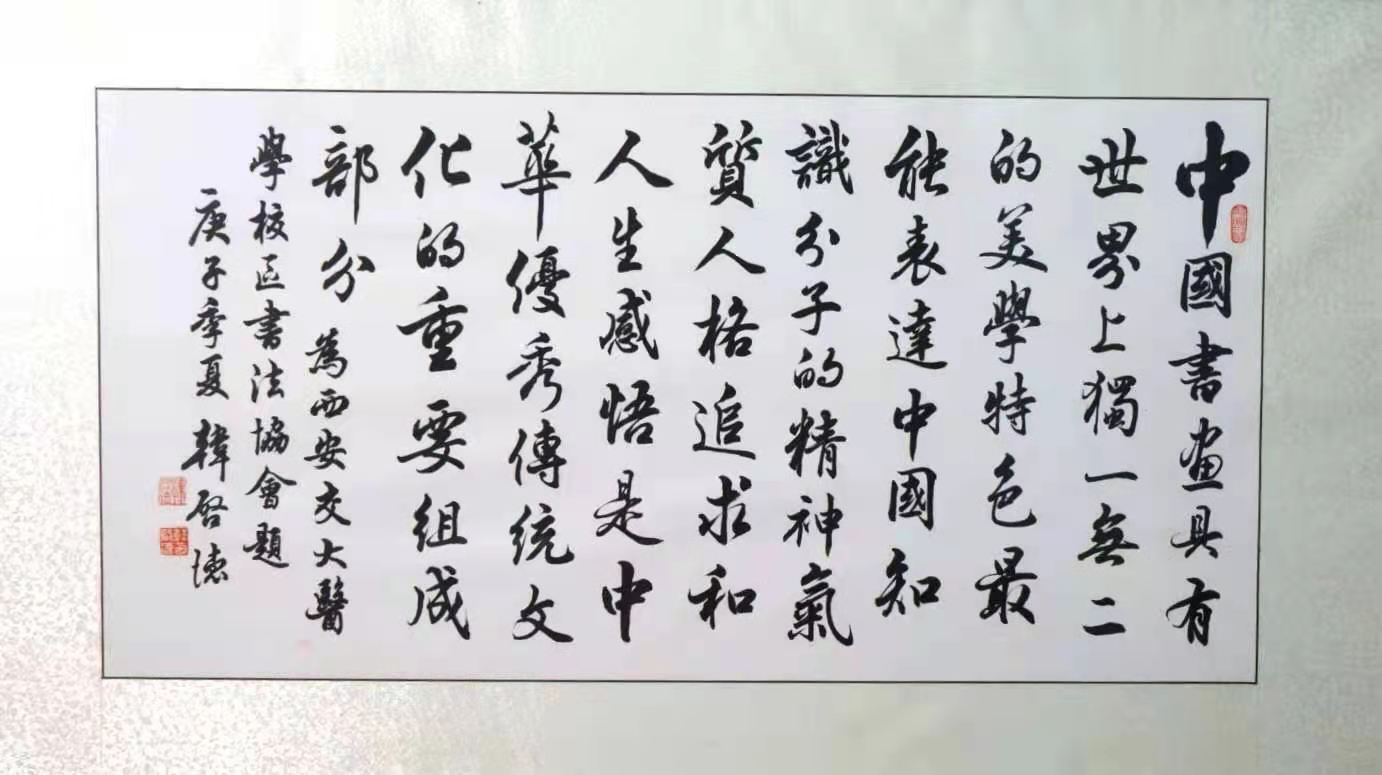 中國書畫具有
世界上獨一無二
的美學特色最
能表達中國知
識分子的精神氣
質人格追求和
人生感悟是中
華優秀傳统文
化的重要组成
部分 為西安交大醫
學校区書法協會題
庚子季夏 韓啓德